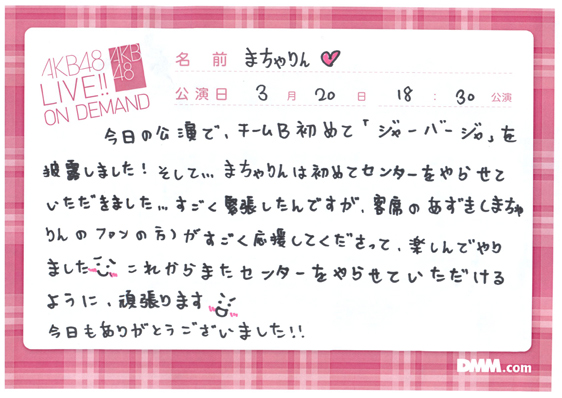 AKB48
LIVE!!
ON DEMAND
AKB
48
名前 まちゃりん
公演日 3月20日 18:30公演
今日の公演で、チームB初めて「ジャーバージャ」を
披露しました！そして... まちゃりんは初めてセンターをやらせて
いただきました...すごく緊張したんですが、客席のあずき(まちゃ
りんのファンの方)がすごく応援してくださって、楽しんでやり
ました これからまたセンターをやらせていただける
ように、頑張ります
今日もありがとうございました!!
DMM.com